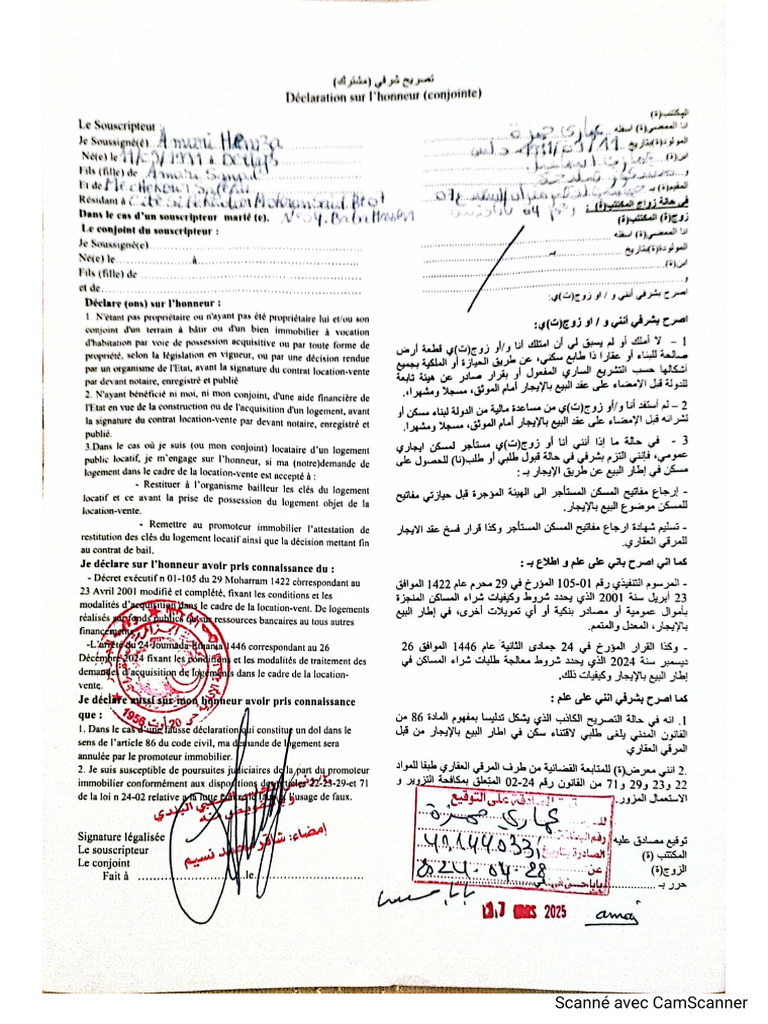 تصريح شرفي (مشترك)
Déclaration sur l'honneur (conjointe)
Le Souscripteur :
Je Soussigné(e) Amari Hamza
Né(e) le 11/09/1991 à Dellys
Fils (fille) de Amari
Et de
Résidant à Cité
Dans le cas d'un souscripteur marié (e). N°04. Baba Hassen
Le conjoint du souscripteur :
Je Soussigné(e)
Né(e) le à
Fils (fille) de
et de
Déclare (ons) sur l'honneur :
1 N'étant pas propriétaire ou n'ayant pas été propriétaire lui et/ou son
conjoint d'un terrain à bâtir ou d'un bien immobilier à vocation
d'habitation par voie de possession acquisitive ou par toute forme de
propriété, selon la législation en vigueur, ou par une décision rendue
par un organisme de l'Etat, avant la signature du contrat location-vente
par devant notaire, enregistré et publié
2. N'ayant bénéficié ni moi, ni mon conjoint, d'une aide financière de
l'Etat en vue de la construction ou de l'acquisition d'un logement, avant
la signature du contrat location-vente par devant notaire, enregistré et
publié.
3.Dans le cas où je suis (ou mon conjoint) locataire d'un logement
public locatif, je m'engage sur l'honneur, si ma (notre)demande de
logement dans le cadre de la location-vente est accepté à :
- Restituer à l'organisme bailleur les clés du logement
locatif et ce avant la prise de possession du logement objet de la
location-vente.
- Remettre au promoteur immobilier l'attestation de
restitution des clés du logement locatif ainsi que la décision mettant fin
au contrat de bail.
Je déclare sur l'honneur avoir pris connaissance du :
- Décret exécutif n 01-105 du 29 Moharram 1422 correspondant au
23 Avril 2001 modifié et complété, fixant les conditions et les
modalités d'acquisition dans le cadre de la location-vent. De logements
réalisés sur fonds publics ou sur ressources bancaires au tous autres
financements.
-L'arrêté du 24 Joumada Ethania 1446 correspondant au 26
Décembre 2024 fixant les conditions et les modalités de traitement des
demandes d'acquisition de logements dans le cadre de la location-
vente.
Je déclare aussi sur mon honneur avoir pris connaissance
que :
1. Dans le cas d'une fausse déclaration qui constitue un dol dans le
sens de l'article 86 du code civil, ma demande de logement sera
annulée par le promoteur immobilier.
2. Je suis susceptible de poursuites judiciaires de la part du promoteur
immobilier conformément aux dispositions des articles 22-23-29-et 71
de la loi n 24-02 relative à la lutte contre le faux et l'usage de faux.
Signature légalisée
Le souscripteur
Le conjoint
Fait à le
إمضاء: شاقر محمد نسيم
المكتتب(ة)
أنا الممضي(ة) أسفله عماري حمزة
المولود(ة) بتاريخ
ابن(ة)
المقيم(ة) بـ
في حالة زواج المكتتب(ة) : رقم 04
زوج(ة) المكتتب(ة)
أنا الممضي(ة) أسفله
المولودة(ة) بتاريخ بـ
ابن(ة)
اصرح بشرفي أنني و / او زوج(ت)ي:
اصرح بشرفي أنني و / او زوج(ت)ي:
1 - لا أملك أو لم يسبق لي أن امتلك أنا و/أو زوج(ت)ي قطعة أرض
صالحة للبناء أو عقارا ذا طابع سكني، عن طريق الحيازة أو الملكية بجميع
أشكالها حسب التشريع الساري المفعول أو بقرار صادر عن هيئة تابعة
للدولة قبل الإمضاء على عقد البيع بالإيجار أمام الموثق، مسجلا ومشهرا.
2 – لم أستفد أنا و/أو زوج(ت)ي من مساعدة مالية من الدولة لبناء مسكن أو
لشرائه قبل الإمضاء على عقد البيع بالإيجار أمام الموثق، مسجلا ومشهرا.
3 - في حالة ما إذا أنني أنا أو زوج(ت)ي مستأجر لمسكن ايجاري
عمومي، فإنني التزم بشرفي في حالة قبول طلبي أو طلب(نا) للحصول على
مسكن في إطار البيع عن طريق الإيجار بـ :
- إرجاع مفاتيح المسكن المستأجر الى الهيئة المؤجرة قبل حيازتي مفاتيح
للمسكن موضوع البيع بالإيجار.
- تسليم شهادة ارجاع مفاتيح المسكن المستأجر وكذا قرار فسخ عقد الايجار
للمرقي العقاري.
كما اني اصرح باني على علم و اطلاع بـ :
- المرسوم التنفيذي رقم 01-105 المؤرخ في 29 محرم عام 1422 الموافق
23 أبريل سنة 2001 الذي يحدد شروط وكيفيات شراء المساكن المنجزة
بأموال عمومية أو مصادر بنكية أو أي تمويلات أخرى، في إطار البيع
بالإيجار، المعدل والمتمم.
- وكذا القرار المؤرخ في 24 جمادى الثانية عام 1446 الموافق 26
ديسمبر سنة 2024 الذي يحدد شروط معالجة طلبات شراء المساكن في
إطار البيع بالإيجار وكيفيات ذلك.
كما اصرح بشرفي انني على علم :
1. انه في حالة التصريح الكاذب الذي يشكل تدليسا بمفهوم المادة 86 من
القانون المدني يلغى طلبي لاقتناء سكن في اطار البيع بالإيجار من قبل
المرقي العقاري
2. انني معرض(ة) للمتابعة القضائية من طرف المرقي العقاري طبقا للمواد
22 و23 و29 و71 من القانون رقم 24-02 المتعلق بمكافحة التزوير و
الاستعمال المزور.
توقيع مصادق عليه
المكتتب (ة)
الزوج(ة)
حرر بـ
المصادقة على التوقيع
عماري حمزة
رقم
الصادرة بتاريخ
2024-04-28
عن
بابا حسن في
17 MARS 2025
Scanné avec CamScanner